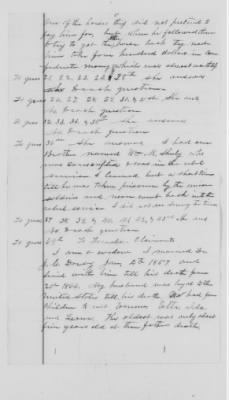 One of the horses they did not pretend to
pay him for, but when he followed them
to try to get the horse back they made
him take four hundred dollars in Con-
federate money which was almost worthless
To ques 21, 22, 23, 24, & 25th she answers
No to each question
To ques 26, 27, 28, 29, 30, & 31st She ans
No to each question
To ques 32, 33, 34, & 35th she answers
No to each question
To ques 36th she answers I had one
Brother named Wm
who was conscripted & was in the rebel
service I learned but a short time
till he was taken prisoner by the union
soldiers and never went back into the
rebel service I did not see during the time
To ques 37 38 39 & 40 41 42, & 43rd She ans
No to each question
To ques 49th To Female Claimants
I am a widow I married Dr
J. C. Dorsey Jany 2nd 1857 and
lived with him till his death June
20th 1866 My husband was loyal to the
United States till his death We had four
Children
and The oldest was only about
years old at their fathers death